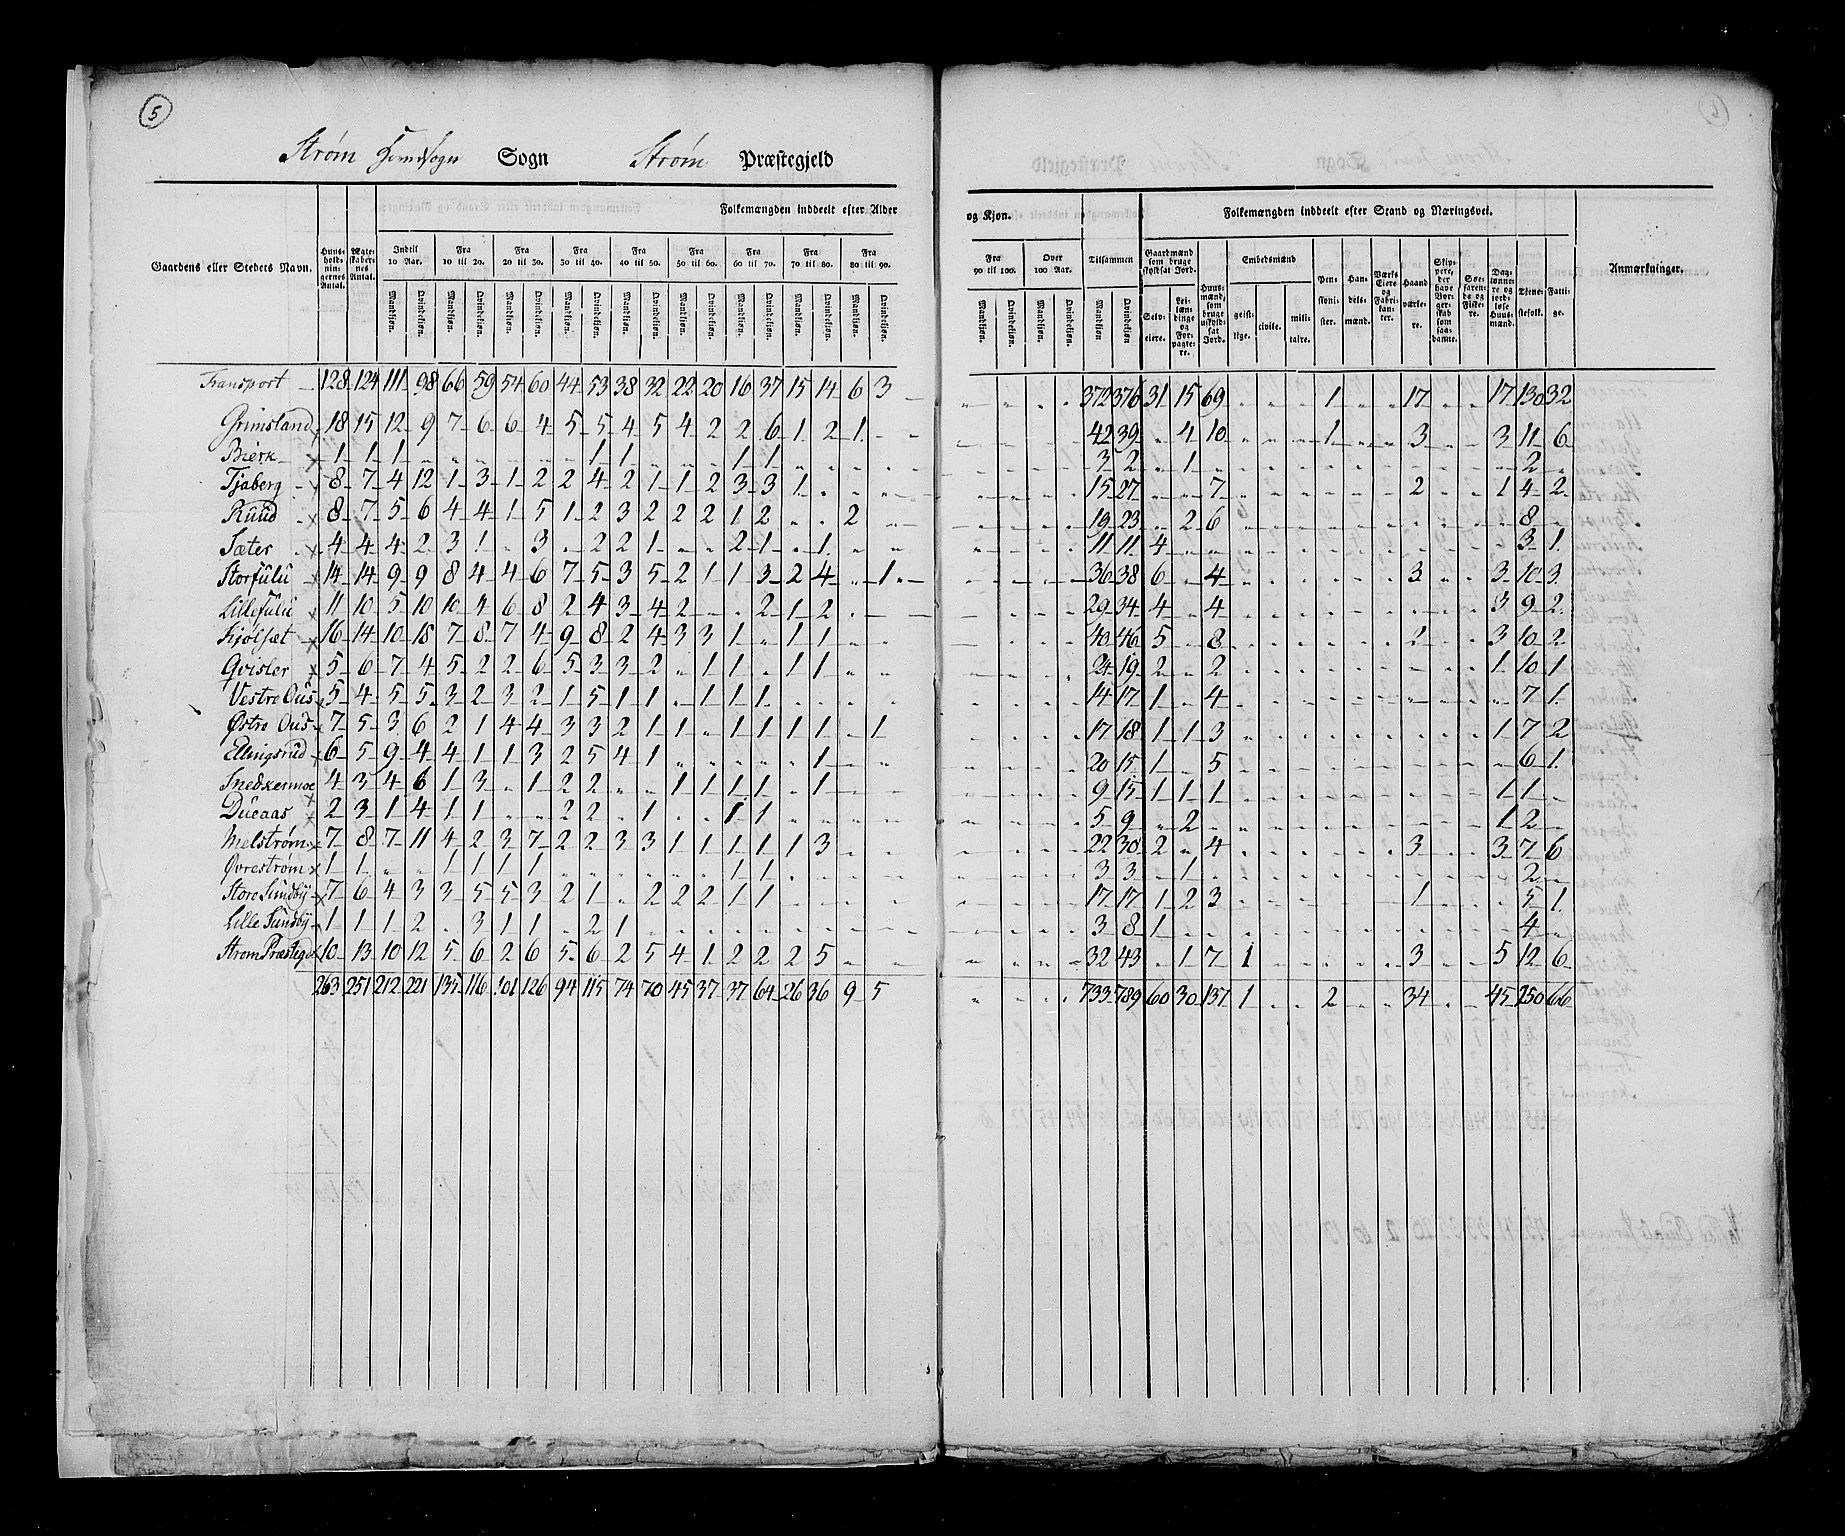 5
Strøm Hovedsogn Sogn Strøm Præstegjeld
Folkemængden inddeelt efter Alder og Kjøn. Folkemængden inddeelt efter Stand og Næringsvei.
Gaardens eller Stedets Navn. Huusholdningernes Antal. Ægteskabernes Antal. Indtil 10 Aar. Fra 10 til 20. Fra 20 til 30. Fra 30 til 40. Fra 40 til 50. Fra 50 til 60. Fra 60 til 70. Fra 70 til 80. Fra 80 til 90. Fra 90 til 100. Over 100 Aar. Tilsammen Gaardmænd som bruge skyldsat Jord. Huusmænd, som bruge uskyldsat Jord. Embedsmænd Pensionister. Handelsmænd. Værks Eiere og Fabrikanter. Haandværkere. Skippere, der have Borgerskab som saadanne. Søefarende og Fiskere. Daglønnere og jordløse Huusmænd. Tjenestefolk. Fattige. Anmærkninger.
Mandkjøn. Qvindekjøn. Mandkjøn. Qvindekjøn. Mandkjøn. Qvindekjøn. Mandkjøn. Qvindekjøn. Mandkjøn. Qvindekjøn. Mandkjøn. Qvindekjøn. Mandkjøn. Qvindekjøn. Mandkjøn. Qvindekjøn. Mandkjøn. Qvindekjøn. Mandkjøn. Qvindekjøn. Mandkjøn. Qvindekjøn. Mandkjøn Qvindekjøn Selveiere. Leilændinge og Forpagtere. geistlige. civile. militaire.
Transport 128 124 111 98 66 59 54 60 44 53 38 32 22 20 16 37 15 14 6 3 372 376 31 15 69 1 17 17 130 32
Grimsland 18 15 12 9 7 6 6 4 5 5 4 5 4 2 2 6 1 2 1 42 39 4 10 1 3 3 11 6
Bierk 1 1 1 1 1 1 1 3 2 1 2
Tjaberg 8 7 4 12 1 3 1 2 2 4 2 1 1 2 3 3 1 15 27 7 2 1 4 2
Ruud 8 7 5 6 4 4 1 5 1 2 3 2 2 2 1 2 2 19 23 2 6 8
Sæter 4 4 4 2 3 1 3 2 2 1 2 1 1 11 11 4 3 1
Storfulu 14 14 9 9 8 4 4 6 7 5 3 5 2 1 1 3 2 4 1 36 38 6 4 3 3 10 3
Lillefulu 11 10 5 10 10 4 6 8 2 4 3 4 2 2 1 2 29 34 4 4 3 9 2
Kjølset 16 14 10 18 7 8 7 4 9 8 2 4 3 3 1 1 1 40 46 5 8 2 3 10 2
Qvisler 5 6 7 4 5 2 2 6 5 3 3 2 1 1 1 1 24 19 2 2 1 10 1
Vestre Ous 5 4 5 5 3 2 3 2 1 5 1 1 1 1 1 14 17 1 4 7 1
Østre Ous 7 5 3 6 2 1 4 4 3 3 2 1 1 1 1 1 1 1 17 18 1 1 3 1 7 2
Ellingsrud 6 5 9 4 4 1 1 3 2 5 4 1 1 20 15 1 5 6 1
Snedkermoe 4 3 4 6 1 3 1 2 2 1 1 1 1 1 9 15 1 1 1 1 1
Dueaas 2 3 1 4 1 1 2 2 1 1 1 5 9 2 1 2
Melstrøm 7 8 7 11 4 2 3 7 2 2 3 3 1 1 1 1 1 3 22 30 2 4 3 3 7 6
Øvrestrøm 1 1 1 1 1 1 1 1 3 3 1 2
Store Sundby 7 6 4 3 3 5 5 3 2 1 2 2 2 1 1 17 17 1 2 3 1 5 1
Lille Sundby 1 1 1 2 3 1 1 2 1 3 8 1 4
Strøm Præstegd 10 13 10 12 5 6 2 6 5 6 2 5 4 1 2 2 2 5 32 43 1 7 1 3 5 12 6
263 251 212 221 135 116 101 126 94 115 74 70 45 37 37 64 26 36 9 5 733 789 60 30 137 1 2 34 45 250 66